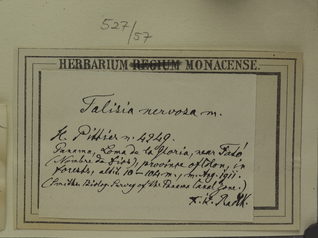 527/57
HERBARIUM REGIUM MONACENSE.
Talisia nervosa m.
H. Pittier n. 4249.
Panama, Loma de la Gloria, near Fató
(Nombre de Dios), province of Colon, in
forests, altit. 10–104 m., m. Aug. 1911.
(Smiths. Biolog. Survey of the Panama Canal Zone.)
Radlk.